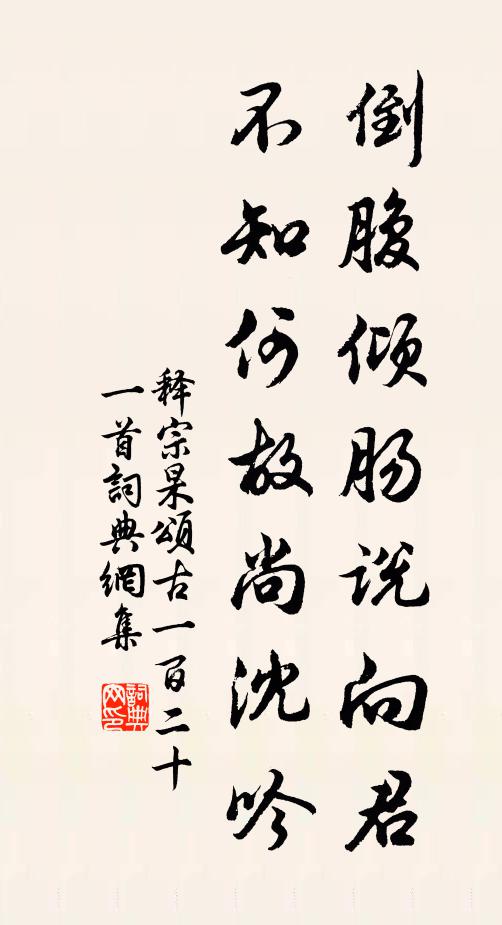 倒腹倾肠说向君
不知何故尚沈吟
释宗杲颂古一百二十
一首詞典網集
詞典网印